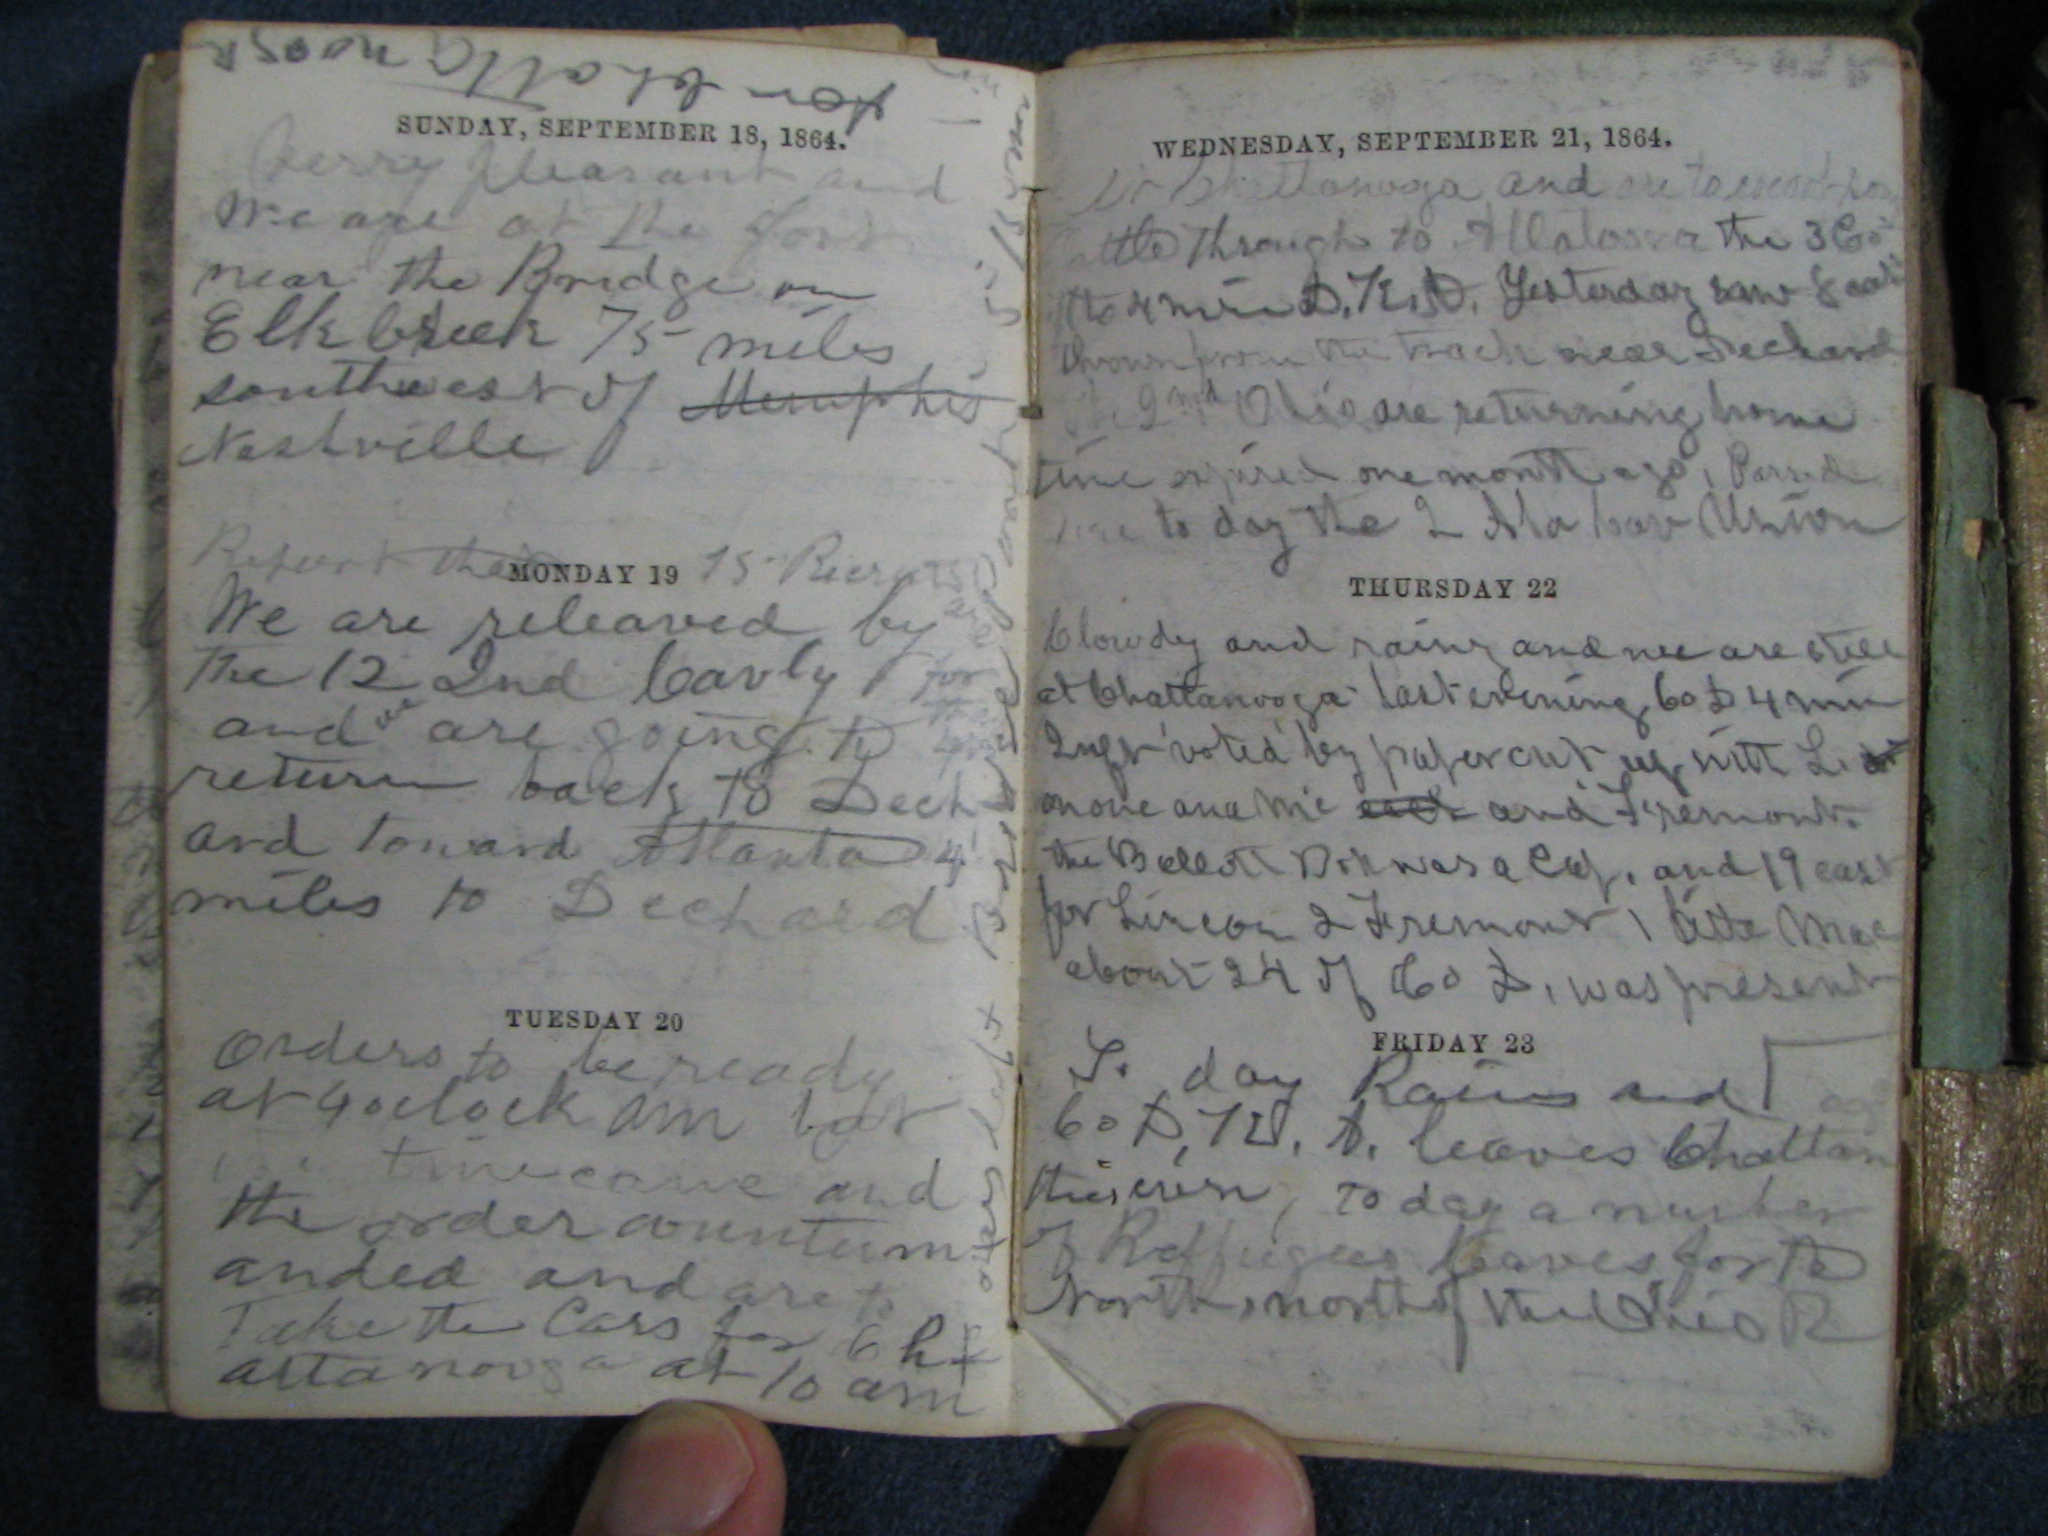 for Chattanooga
SUNDAY, SEPTEMBER 18, 1864.
Verry pleasant and
We are at the fort
near the Bridge on
Elk Creek 75 miles
southwest of Memphis
Nashville
Report that 15 Recruts
are
for
MONDAY 19
We are releaved by
the 12 2nd Cavly
and we are going to
return back to Dech
and toward Atlanta 4
miles to Dechard
TUESDAY 20
Orders to be ready
at 4 oclock AM but
time came and
the order counterm
anded and are to
Take the Cars for Ch
attanooga at 10 am
WEDNESDAY, SEPTEMBER 21, 1864.
in Chattanooga and are to
through to Allatoona the 3 Co
4 min D. K. D. Yesterday saw 8 cars
thrown from the track near Dechard
the 2nd Ohio are returning home
time expired one month ago, Passed
here to day the 2 Ala Cav Union
THURSDAY 22
Clowdy and rainy and we are still
at Chattanooga last evening Co D 4 min
voted by paper cut up with L
on one and Mc and Fremont.
the Ballott Box was a Cap, and 19 cast
for Lincon 2 Fremont 1 little Mac
about 24 of Co D, was present
FRIDAY 23
To day Rains and
Co D, leaves Chattan
this even, to day a number
of Reffugees leaves for the
North, north of the Ohio R